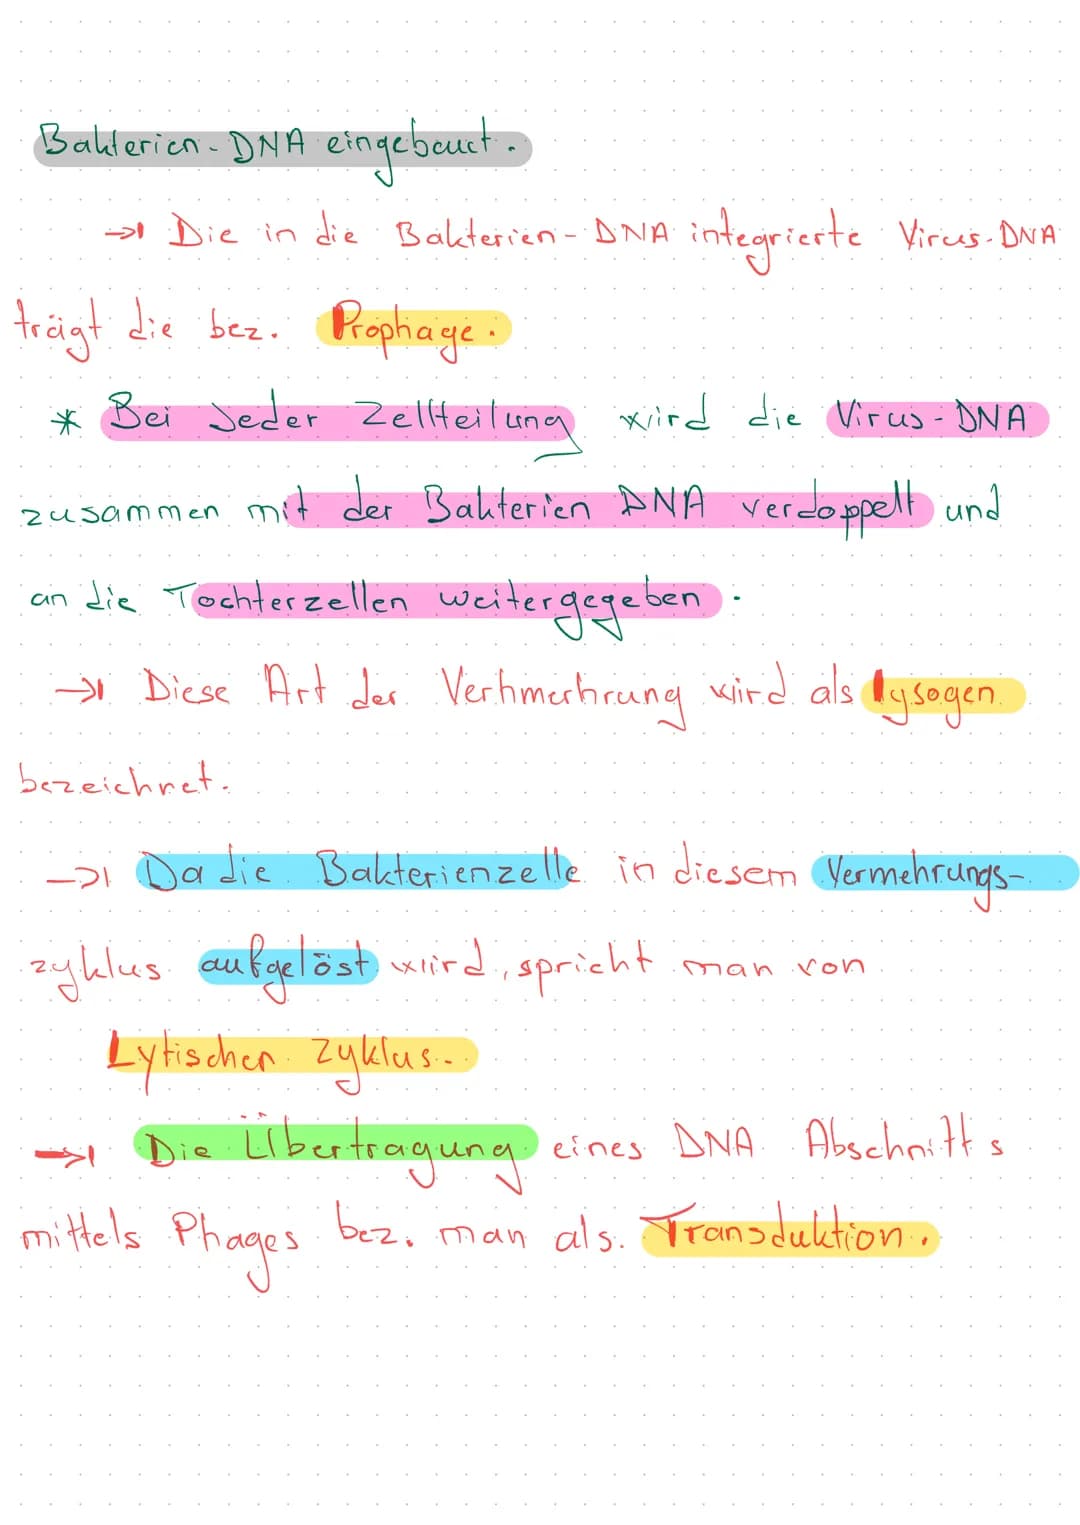 Bakterien-DNA eingebaut.
→ Die in die Bakterien-DNA integrierte Virus-DNA
trägt die bez. Prophage.
* Bei Jeder Zellteilung wird die Virus-DNA
zusammen mit der Bakterien DNA verdoppelt und
an die Tochterzellen weitergegeben.
→ Diese Art der Verhmerhrung wird als lysogen
bezeichnet.
→ Da die Bakterienzelle in diesem Vermehrungs-
zyklus aufgelöst wird, spricht man von
Lytischen Zyklus.
→ Die Übertragung eines DNA Abschnitts
mittels Phages bez. man als Transduktion.